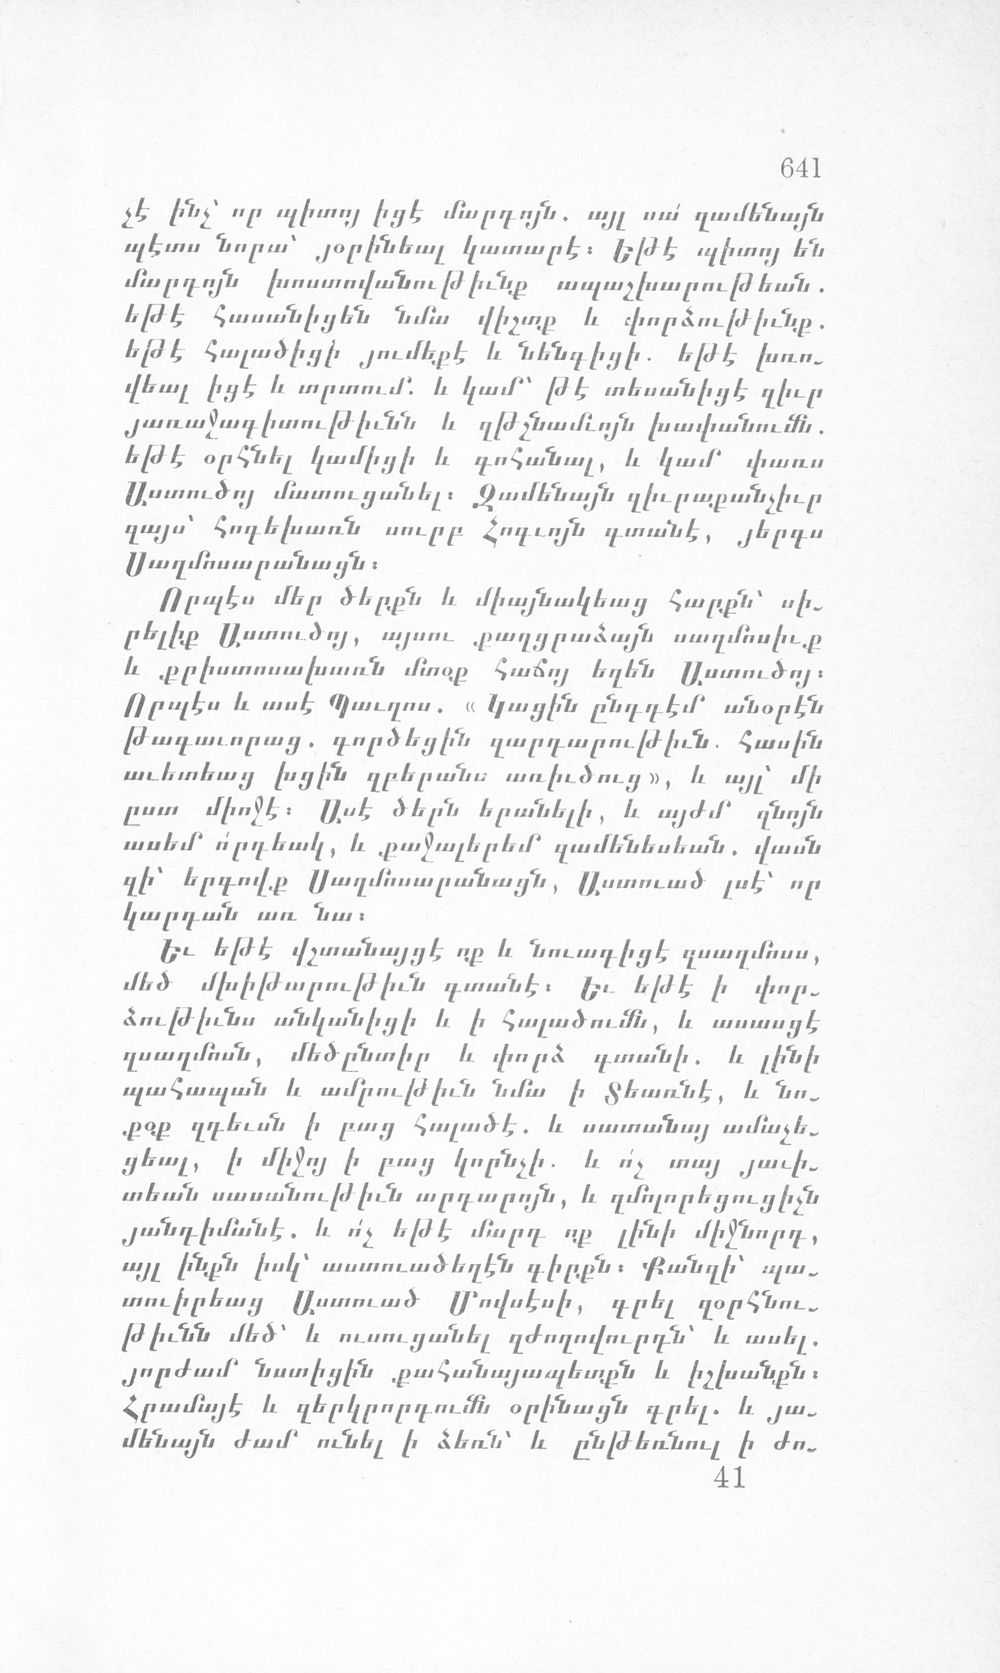 641
չէ ինչ՝ որ պիտոյ իցէ մարդոյն. այլ սա՛ զամենայն
պէտս նորա՝ յօրինեալ կատարէ։ Եթէ պիտոյ են
մարդոյն խոստովանութիւնք ապաշխարութեան.
եթէ հասանիցեն նմա վիշտք և փորձութիւնք.
եթէ հալածիցի յումեքէ և նենգիցի. եթէ խռո֊
վեալ իցէ և տրտում. և կամ՝ թէ տեսանիցէ զիւր
յառաջադիտութիւնն և զթշնամւոյն խափանումն.
եթէ օրհնել կամիցի և գոհանալ, և կամ փառս
Աստուծոյ մատուցանել։ Զամենայն զիւրաքանչիւր
զայս՝ հոգեխառն սուրբ Հոգւոյն գտանէ, յերգս
Սաղմոսարանացն։
Որպէս մեր ծերքն և միայնակեաց հարքն՝ սի֊
րելիք Աստուծոյ, այսու քաղցրաձայն սաղմոսիւք
և քրիստոսախառն մտօք հաճոյ եղեն Աստուծոյ։
Որպէս և ասէ Պաւղոս. «Կացին ընդդէմ անօրէն
թագաւորաց. գործեցին զարդարութիւն. հասին
աւետեաց խցին զբերանս առիւծուց», և այլ՝ մի
ըստ միոջէ։ Ասէ ծերն երանելի, և այժմ զնոյն
ասեմ ո՛րդեակ, և քաջալերեմ զամենեսեան. վասն
զի՝ երգովք Սաղմոսարանացն, Աստուած լսէ՝ որ
կարդան առ նա։
Եւ եթէ վշտանայցէ ոք և նուագիցէ զսաղմոսս,
մեծ մխիթարութիւն գտանէ։ Եւ եթէ ի փոր֊
ձութիւնս անկանիցի և ի հալածումն, և ասասցէ
զսաղմոսն, մեծընտիր և փորձ գտանի. և լինի
պահապան և ամրութիւն նմա ի Տեառնէ, և նո֊
քօք զդեւսն ի բաց հալածէ. և սատանայ ամաչե֊
ցեալ, ի միջոյ ի բաց կորնչի. և ո՛չ տայ յաւի֊
տեան սասանութիւն արդարոյն, և զմոլորեցուցիչն
յանդիմանէ. և ո՛չ եթէ մարդ ոք լինի միջնորդ,
այլ ինքն իսկ՝ աստուածեղէն գիրքն։ Քանզի՝ պա֊
տուիրեաց Աստուած Մովսէսի, գրել զօրհնու֊
թիւնն մեծ՝ և ուսուցանել զժողովուրդն՝ և ասել.
յորժամ նստիցին քահանայապետքն և իշխանքն։
Հրամայէ և զերկրորդումն օրինացն գրել. և յա֊
մենայն ժամ ունել ի ձեռն՝ և ընթեռնուլ ի ժո֊
41